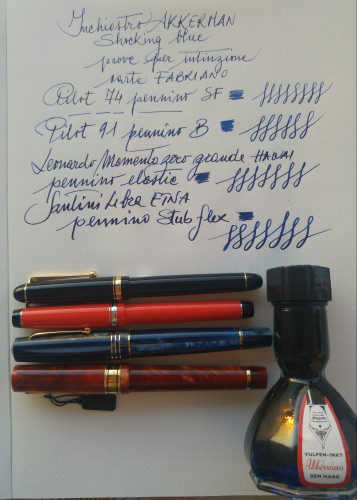 Inchiostro AKKERMAN
Shocking blue
prove per intinzione
carta FABRIANO
Pilot 74 pennino SF
Pilot 91 pennino B
Leonardo Momento zero grande HAWAI
pennino elastic
Santini Libra ETNA
pennino Stub flex
VULPEN-INKT
Akkerman
DEN HAAG